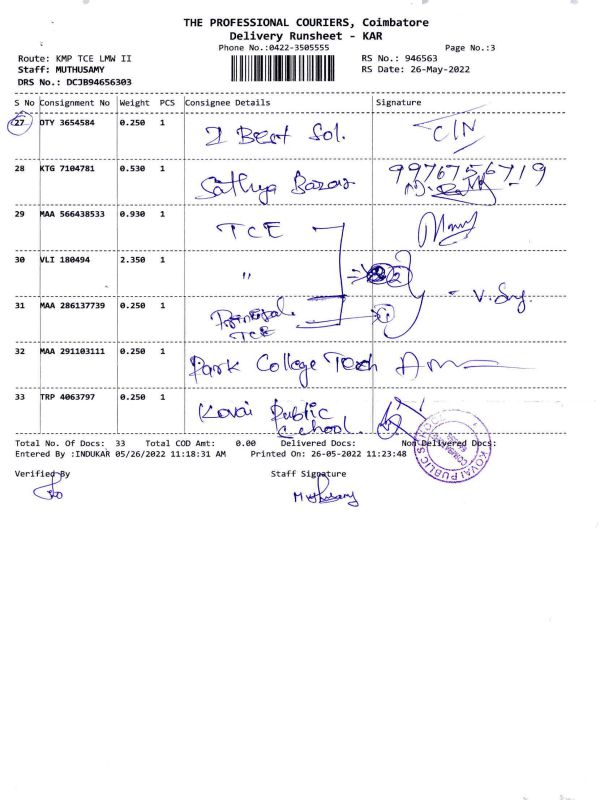 THE PROFESSIONAL COURIERS, Coimbatore
Delivery Runsheet - KAR
Phone No.:0422-3505555
Page No.:3
Route: KMP TCE LMW II
RS No.: 946563
Staff: MUTHUSAMY
RS Date: 26-May-2022
DRS No.: DCJB94656303
S No Consignment No Weight PCS Consignee Details Signature
27 DTY 3654584 0.250 1 I Best Sol. C/N
28 KTG 7104781 0.530 1 Sathya Bazar 9976756719
29 MAA 566438533 0.930 1 TCE
30 VLI 180494 2.350 1 " 2
31 MAA 286137739 0.250 1 Principal. 1
TCE
32 MAA 291103111 0.250 1 Park College Tech
33 TRP 4063797 0.250 1 Kovai Public
School.
Total No. Of Docs: 33 Total COD Amt: 0.00 Delivered Docs: Non Delivered Docs:
Entered By :INDUKAR 05/26/2022 11:18:31 AM Printed On: 26-05-2022 11:23:48
KOVAI PUBLIC SCHOOL
Verified By Staff Signature
Muthusamy